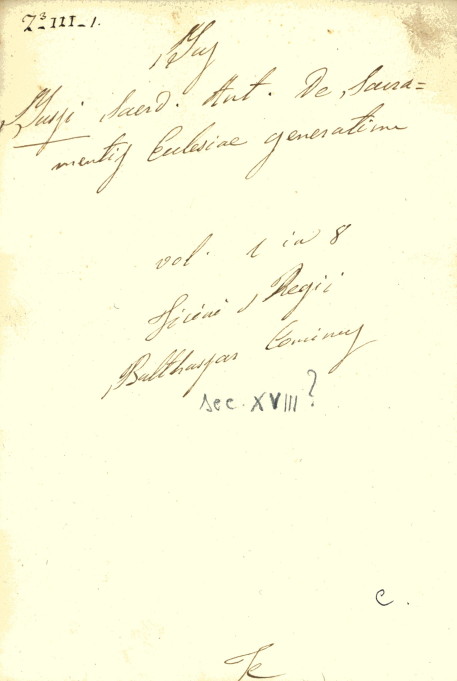 Z³ III_1.
Saerd. Ant. De Sacra=
mentis Eclesiae generatim
vol. 1 in 8
Ticini Regii
Balthassar Cominus
sec. XVIII?
c.